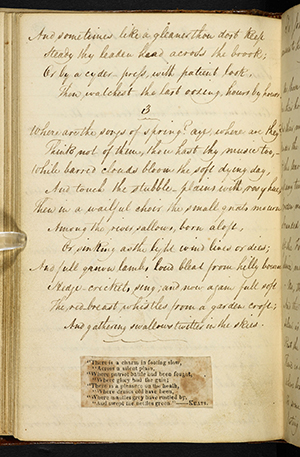 And sometimes like a gleaner thou dost keep
Steady thy leaden head across the brook;
Or by a cyder-press, with patient look,
Thou watchest the last oozing, hours by hours
3
Where are the songs of spring? ay, where are they?
Think not of them, thou hast thy music too,—
While barred clouds bloom the soft dying day
And touch the stubble-plains with rosy hue;
Then in a wailful choir the small gnats mourn
Among the river sallows, born aloft,
Or sinking as the light wind lives or dies;
And full grown lambs loud bleat from hilly bourn
Hedge-crickets sing, and now again full soft
The red-breast whistles from a garden croft;
And gathering swallows twitter in the skies.
"There is a charm in footing slow,
"Across a silent plain,
"Where patriot battle had been fought,
"Where glory had the gain;
"There is a pleasure on the heath,
"Where druids old have been,
"Where mantles grey have rustled by,
"And swept the nettles green"—KEATS.